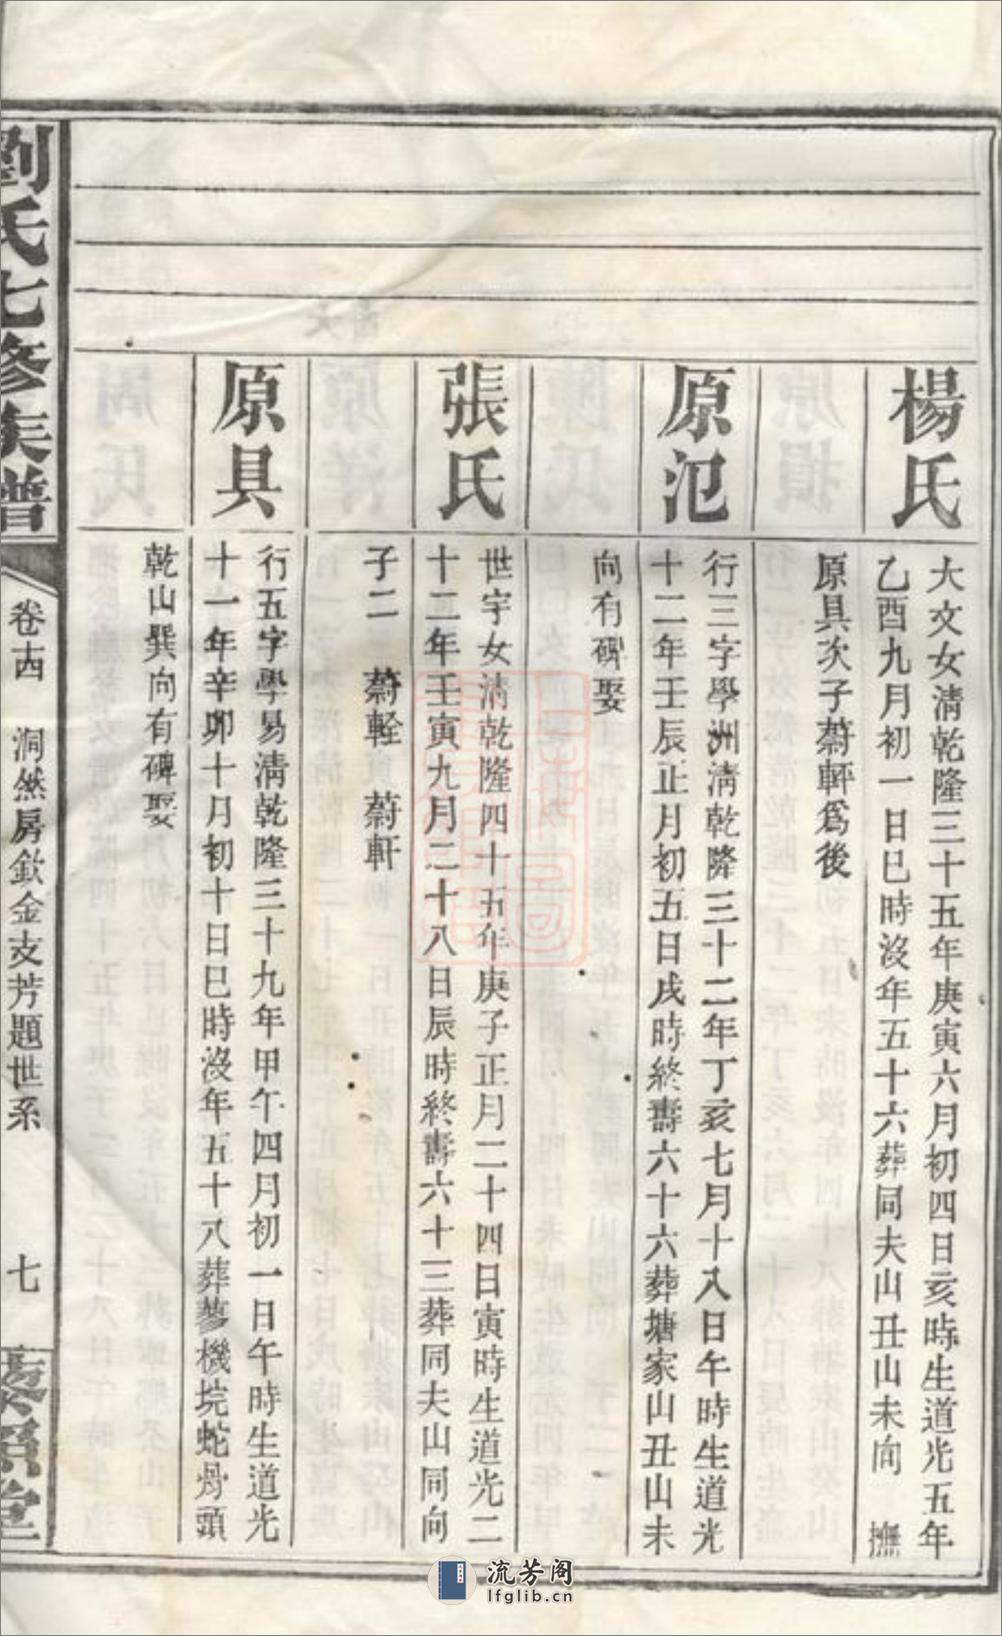 楊氏
大文女清乾隆三十五年庚寅六月初四日亥時生道光五年
乙酉九月初一日巳時沒年五十六葬同夫山丑山未向　撫
原具次子蔚軒為後
原氾
行三字學洲清乾隆三十二年丁亥七月十八日午時生道光
十二年壬辰正月初五日戌時終壽六十六葬塘家山丑山未
向有碑娶
張氏
世宇女清乾隆四十五年庚子正月二十四日寅時生道光二
十二年壬寅九月二十八日辰時終壽六十三葬同夫山同向
子二　蔚輊　蔚軒
原具
行五字學易清乾隆三十九年甲午四月初一日午時生道光
十一年辛卯十月初十日巳時沒年五十八葬蓼機垸蛇骨頭
乾山巽向有碑娶
劉氏七修族譜
卷十四　洞然房欽金支芳題世系
七
流芳阁
lfglib.cn